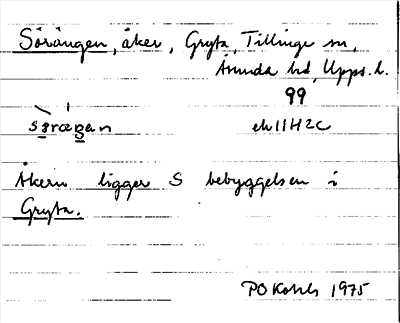 Sörängen, åker, Gryta, Tillinge sn,
Åsunda hd, Upps. l.
99
særægan
ek 11H2C
Åkern ligger S bebyggelsen i
Gryta.
1975